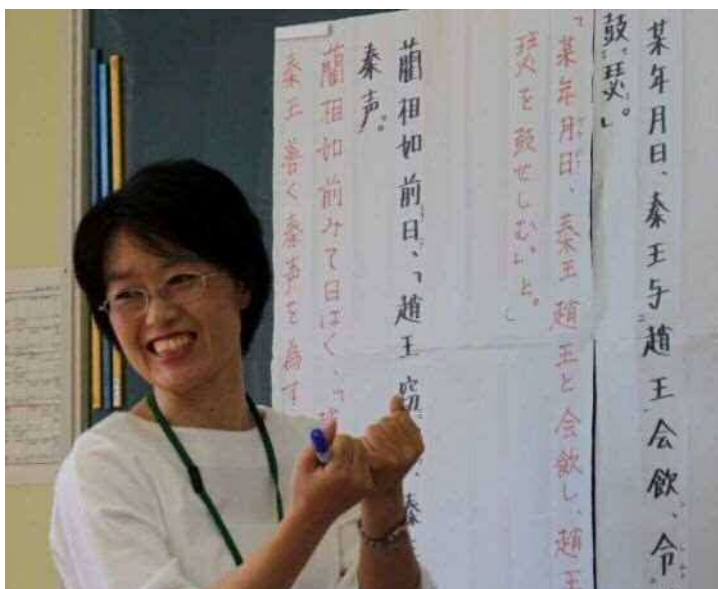 某年月日、秦王与趙王会飲、令
鼓瑟。」
「某年月日、秦王趙王と会飲し、趙王
瑟を鼓せしむ。」と。
藺相如前曰、「趙王窃
秦声。
藺相如前みて曰はく、「
秦王善く秦声を為す